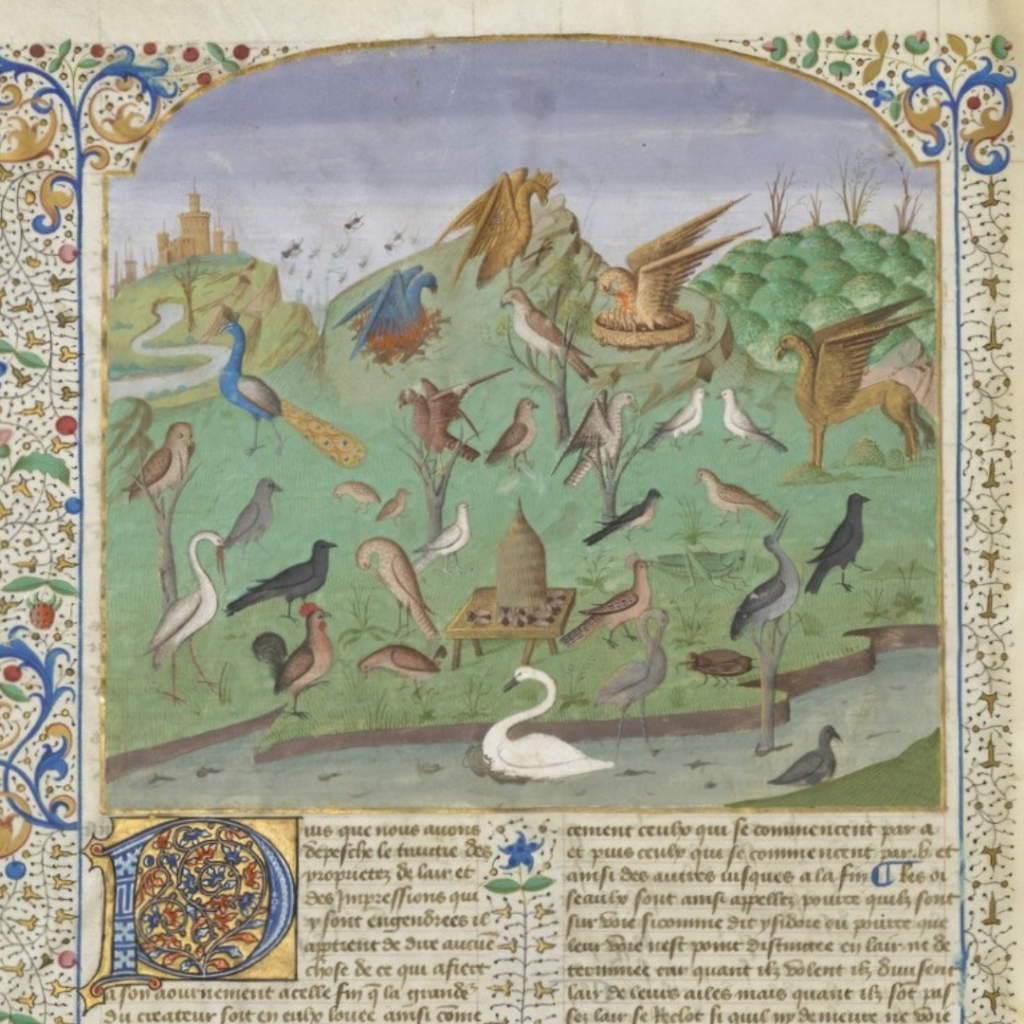 Puis que nous auons
depesche le traictie des
proprietez de lair et
des Impressions qui
y sont engendrees il
appertient de dire aucune
chose de ce qui affiert
a son aournement a celle fin q̄ la grande
du createur soit en eulx louee ainsi come
cement ceulx qui se commencent par a
et puis ceulx qui se commencent par .b. et
ainsi des autres iusques a la fin ¶ Les oi
seaulx sont ainsi appellez pource quilz sont
sur voie si comme dit ysidore ou pource que
leur voie nest point distincte en lair ne de
terminee car quant ilz volent ilz diuisent
lair de leurs ailes mais quant ilz sōt pas
sez lair se reclot si quil ny demeure ne voie